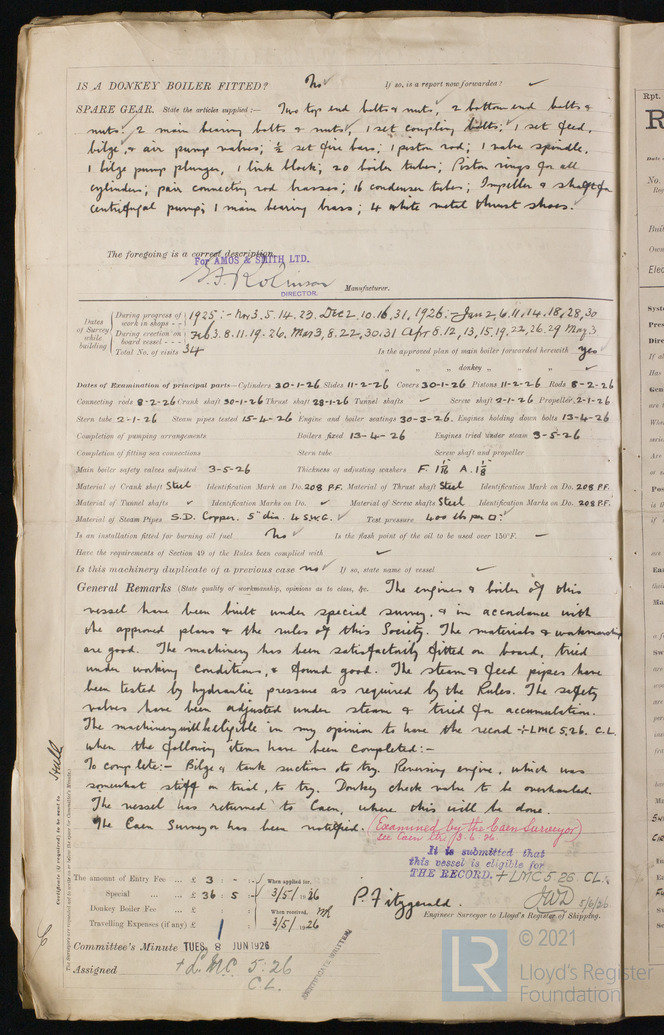 IS A DONKEY BOILER FITTED? No ✓ If so, is a report now forwarded? ✓
SPARE GEAR. State the articles supplied :— Two top end bolts & nuts, 2 bottom end bolts &
nuts, 2 main bearing bolts & nuts, 1 set coupling bolts; 1 set feed,
bilge, & air pump valves; ½ set fire bars; 1 piston rod; 1 valve spindle,
1 bilge pump plunger, 1 link block; 20 boiler tubes; Piston rings for all
cylinders; pair connecting rod brasses; 16 condenser tubes; Impeller & shaft for
centrifugal pump; 1 main bearing brass; 4 white metal thrust shoes.
The foregoing is a correct description,
For AMOS & SMITH LTD.
Robinson
DIRECTOR. Manufacturer.
Dates of Survey while building
During progress of work in shops - - 1925:- Nov 3. 5. 14. 23. Dec 2. 10. 16. 31. 1926:- Jan 2, 6, 11, 14, 18, 28, 30
During erection on board vessel - - - Feb 3. 8. 11. 19. 26. Mar 3, 8. 22, 30. 31 Apr 8. 12, 13, 15, 19, 22, 26. 29 May 3
Total No. of visits 34 Is the approved plan of main boiler forwarded herewith yes
" " " donkey " " ✓
Dates of Examination of principal parts—Cylinders 30-1-26 Slides 11-2-26 Covers 30-1-26 Pistons 11-2-26 Rods 8-2-26
Connecting rods 8-2-26 Crank shaft 30-1-26 Thrust shaft 28-1-26 Tunnel shafts ✓ Screw shaft 2-1-26 Propeller 2-1-26
Stern tube 2-1-26 Steam pipes tested 15-4-26 Engine and boiler seatings 30-3-26 Engines holding down bolts 13-4-26
Completion of pumping arrangements Boilers fixed 13-4-26 Engines tried under steam 3-5-26
Completion of fitting sea connections Stern tube Screw shaft and propeller
Main boiler safety valves adjusted 3-5-26 Thickness of adjusting washers F. 1 1/16 A. 1 1/8
Material of Crank shaft Steel Identification Mark on Do. 208 P.F. Material of Thrust shaft Steel Identification Mark on Do. 208 P.F.
Material of Tunnel shafts ✓ Identification Marks on Do. ✓ Material of Screw shafts Steel Identification Marks on Do. 208 P.F.
Material of Steam Pipes S.D. Copper. 5" dia. 4 S.W.G. ✓ Test pressure 400 lbs per □" ✓
Is an installation fitted for burning oil fuel No ✓ Is the flash point of the oil to be used over 150°F. —
Have the requirements of Section 49 of the Rules been complied with ✓
Is this machinery duplicate of a previous case no ✓ If so, state name of vessel ✓
General Remarks (State quality of workmanship, opinions as to class, &c. The engines & boiler of this
vessel have been built under special survey, & in accordance with
the approved plans & the rules of this Society. The materials & workmanship
are good. The machinery has been satisfactorily fitted on board, tried
under working conditions, & found good. The steam & feed pipes have
been tested by hydraulic pressure as required by the Rules. The safety
valves have been adjusted under steam & tried for accumulation.
The machinery will be eligible in my opinion to have the record +LMC 5,26. C.L.
when the following items have been completed:-
To complete:- Bilge & tank suctions to try. Reversing engine, which was
somewhat stiff on trial, to try. Donkey check valve to be overhauled.
The vessel has returned to Caen, where this will be done.
The Caen Surveyor has been notified. (Examined by the Caen Surveyor)
See Caen ltr. 13.6.26
It is submitted that
this vessel is eligible for
THE RECORD. + LMC 5 26. CL.
JWD 5/6/26
The amount of Entry Fee ... £ 3 : - : When applied for,
Special ... ... £ 36 : 5 : 3/5/1926
Donkey Boiler Fee ... £ : : When received,
Travelling Expenses (if any) £ : : 3/5/1926
P. Fitzgerald.
Engineer Surveyor to Lloyd's Register of Shipping.
Committee's Minute TUES. 8 JUN 1926
Assigned + L.M.C. 5.26
C L.
CERTIFICATE WRITTEN
Hull
Certificate (if required) to be sent to
© 2021
Lloyd's Register
Foundation
LR
Rpt.